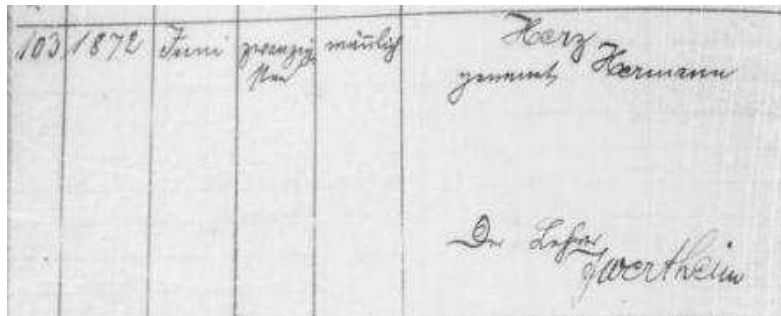 103 1872 Juni zwanzig männlich Herz
sten genannt Hermann
Der Lehrer
Wertheim